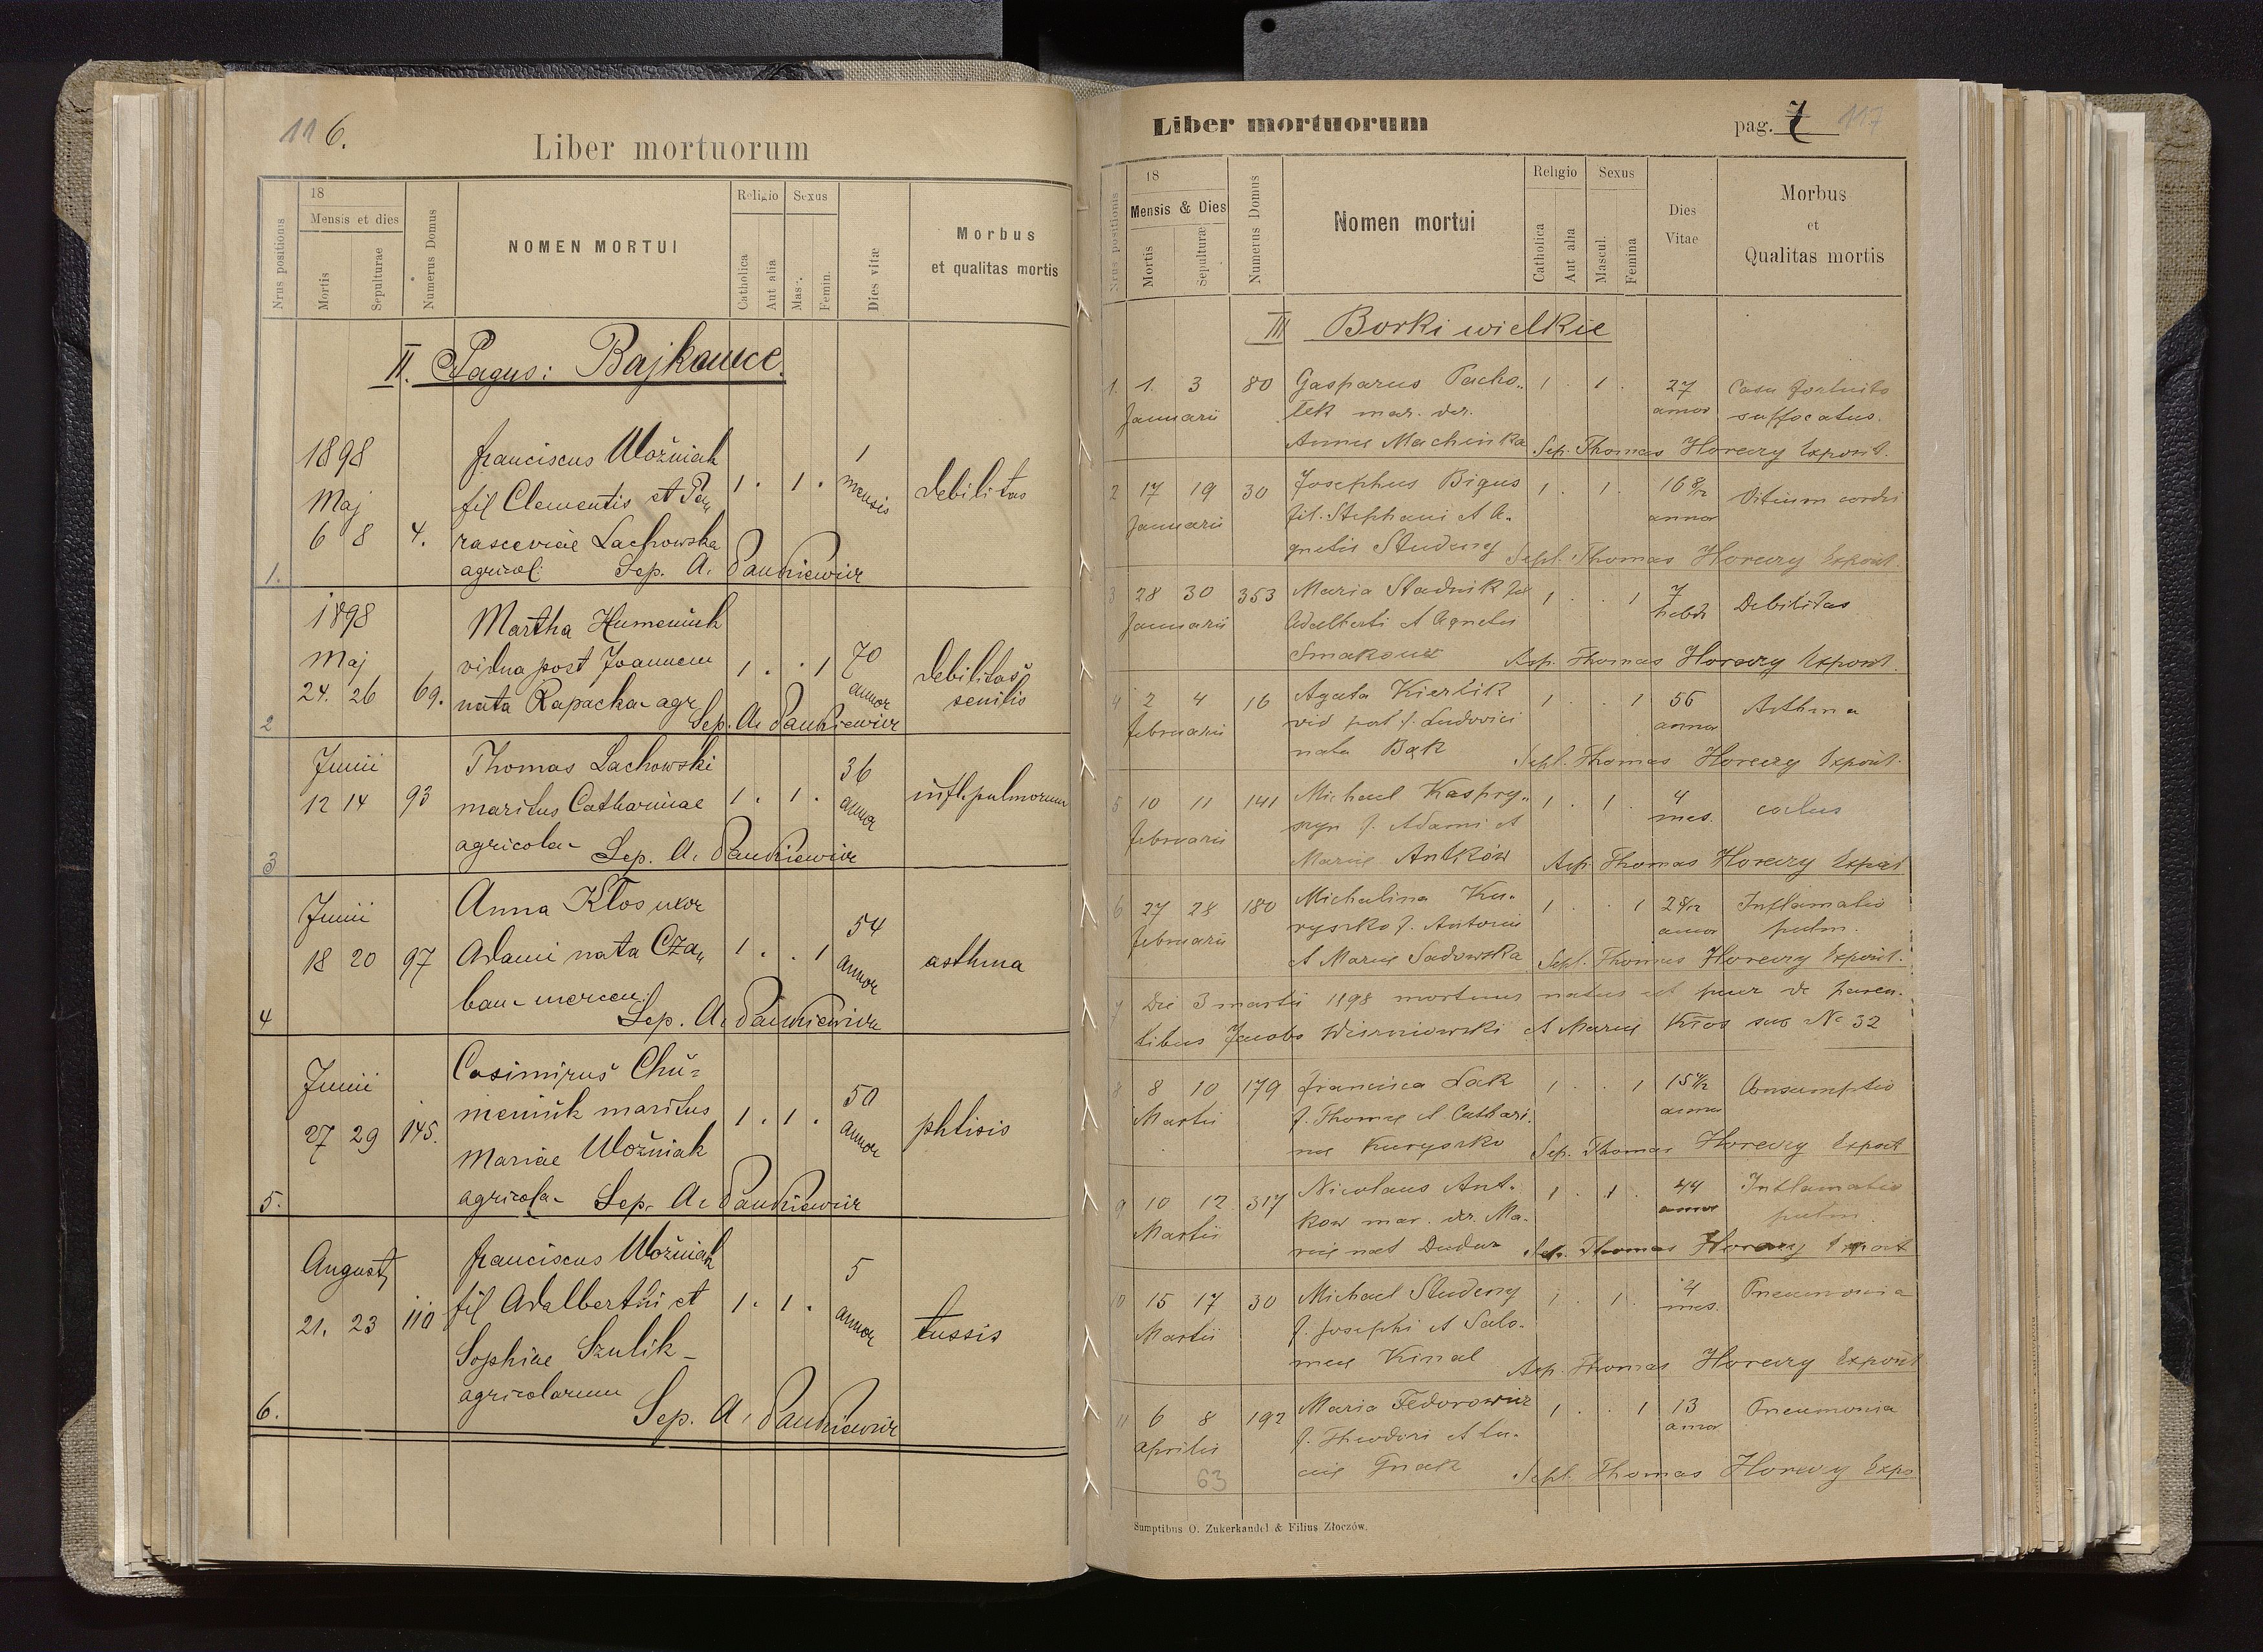 116.
Liber mortuorum
Nrus positionis
18
Mensis et dies
Mortis
Sepulturae
Numerus Domus
NOMEN MORTUI
Religio
Catholica
Aut alia
Sexus
Mas.
Femin.
Dies vitæ
Morbus
et qualitas mortis
II. Pagus: Bajkowce.
1898
Maj
6 8 4.
franciscus Woźniak
fil Clementis et Pa„
rasceviae Lachowska
agricol. Sep. A.
1 . 1 . 1 mensis
debilitas
1.
1898
Maj
24. 26 69.
Martha Humeniuk
vidua post Joannem
nata Rapacka agr
Sep. A.
1 . . 1 70 annor
debilitas
senilis
2
Junii
12 14 93
Thomas Lachowski
maritus Catharinae
agricola Sep. A.
1 . 1 . 36 annor
infl. pulmorum
3
Junii
18 20 97
Anna Kłos uxor
Adami nata Cza„
ban mercen.
Sep. A.
1 . . 1 54 annor
asthma
4
Junii
27 29 145.
Casimirus Chu=
meniuk maritus
Mariae Woźniak
agricola Sep. A.
1 . 1 . 50 annor
phtisis
5.
August,
21. 23 110
franciscus Woźniak
fil Adalberti et
Sophiae Szulik
agricolarum
Sep. A.
1 . 1 . 5 annor
tussis
6.
Liber mortuorum
pag. 7 117
Nrus positionis
18
Mensis & Dies
Mortis
Sepulturæ
Numerus Domus
Nomen mortui
Religio
Catholica
Aut alia
Sexus
Mascul.
Femina
Dies
Vitae
Morbus
et
Qualitas mortis
III Borki wielkie
1. 1. 3 80 Gasparus Pacho„ 1 . 1 . 27 Casu fortuito
Januarii lek mar. der. annor suffocatus.
Annae Machinka Sep. Thomas Horeczy Exposit.
2 17 19 30 Josephus Bigus 1 . 1 . 16 8/12 Vitium cordis
Januarii fil. Stephani et A- annor
gnetis Studeny Sepl. Thomas Horeczy Exposit.
3 28 30 353 Maria Stadnik fil 1 . . 1 7 Debilitas
Januarii Adalberti et Agnetis hebd
Smakouz Sep. Thomas Horeczy Exposit.
4 2 4 16 Agata Kierlik 1 . . 1 56 Asthma
februarii vid post f. Ludovici annor
nata Bąk Sepl. Thomas Horeczy Exposit.
5 10 11 141 Michael Kaspry„ 1 . 1 . 4
februarii f. Adami et mes.
Mariae Antków Sep. Thomas Horeczy Exposit
6 27 28 180 Michalina Ku- 1 . . 1 Inflamatio
februarii ryszko f. Antonii annor pulm.
et Mariae Sadowska Sepl. Thomas Horeczy Exposit.
7 Die 3 martii 1198 mortuus natus est puer de paren-
tibus Jacobo Wiśniowski et Maria Kłos sub No 32
8 8 10 179 francisca Łak 1 . . 1 Consumptio
Martii f. Thomae et Cathari- annor
nae Kuryszko Sep. Thomas Horeczy Exposit
9 10 12 317 Nicolaus Ant- 1 . 1 . 44 Inflamatio
Martii kow mar. der. Ma- annor pulm
riae nat Dudar Sep. Thomas Horeczy Exposit
10 15 17 30 Michael Studeny 1 . 1 . 4 Pneumonia
Martii f. Josephi et Salo- mes.
meae Kinal Sep. Thomas Horeczy Exposit
11 6 8 192 Maria Fedorowicz 1 . . 1 13 Pneumonia
Aprilis f. Theodori et Lu- annor
ciae Gnak Sepl. Thomas Horeczy Expo
63
Sumptibus O. Zukerkandel & Filius Złoczów.